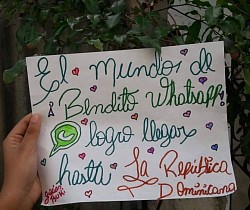 El Mundo de
¡Bendito Whatsapp!
logro llegar
hasta La República
Dominicana